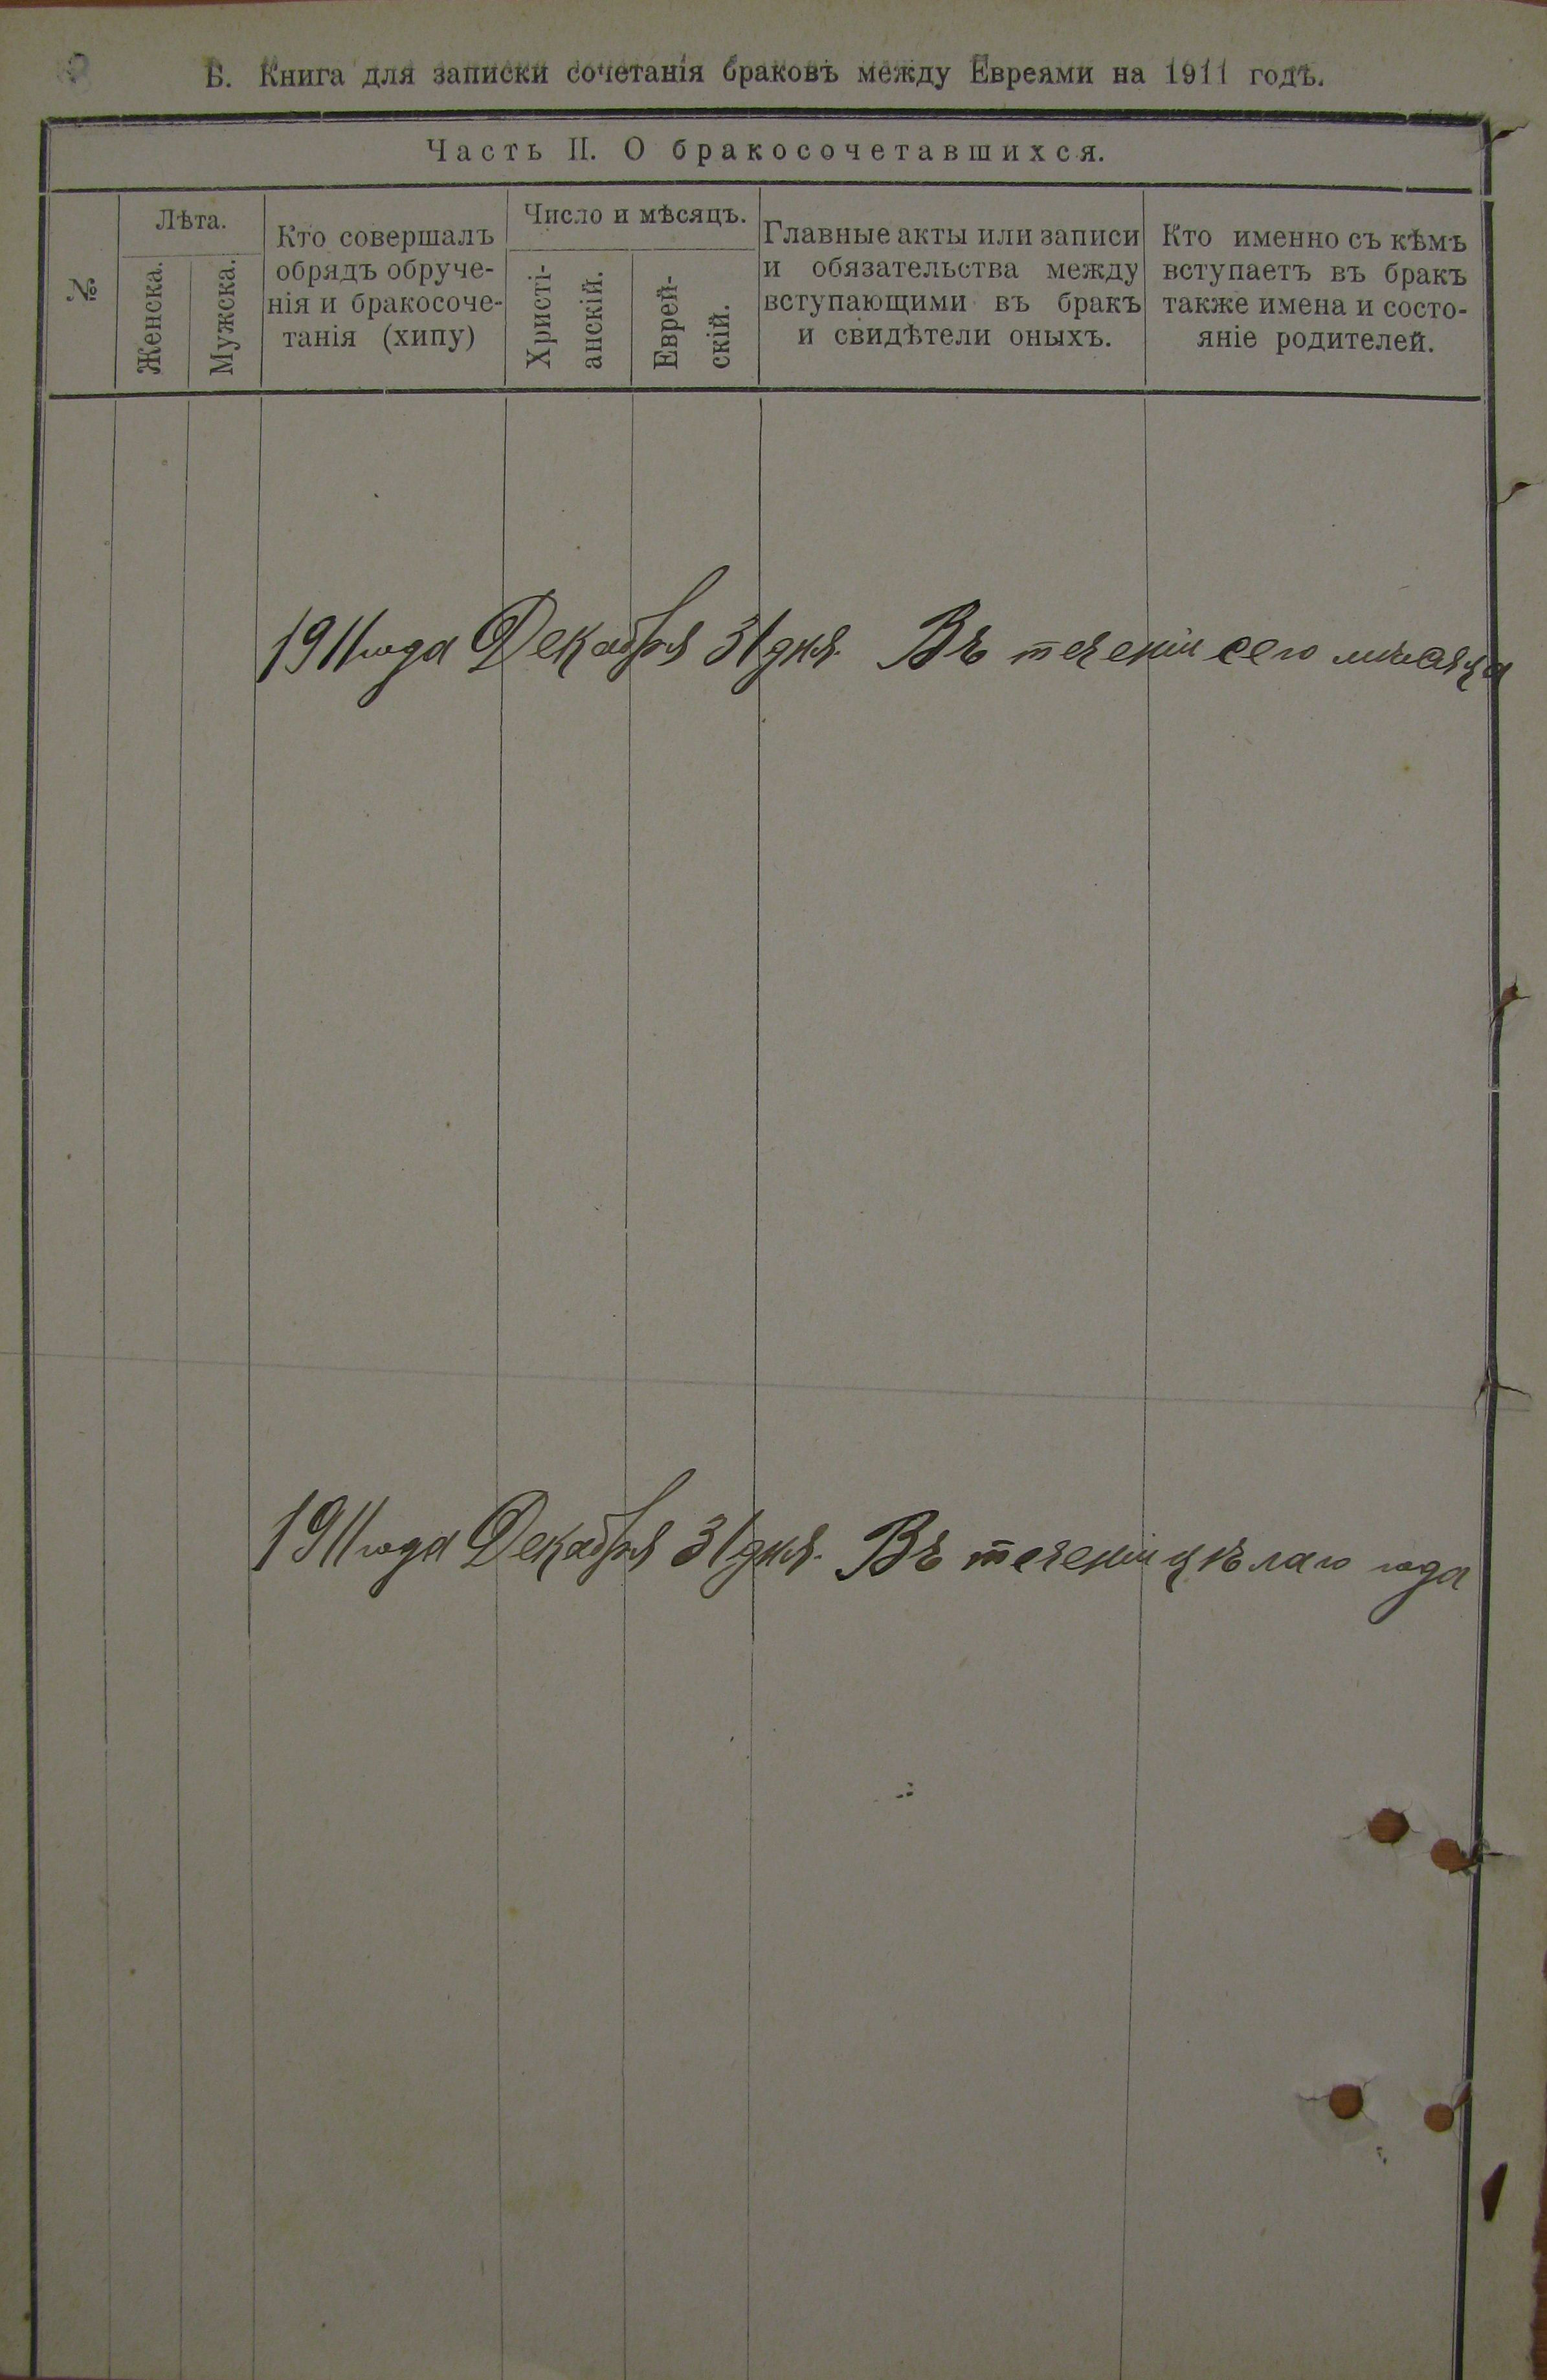 Б. Книга для записки сочетанія браковъ между Евреями на 1911 годъ.
Часть II. О бракосочетавшихся.
№
Лѣта.
Женска.
Мужска.
Кто совершалъ
обрядъ обруче-
нія и бракосоче-
танія (хипу)
Число и мѣсяцъ.
Христі-
анскій.
Еврей-
скій.
Главные акты или записи
и обязательства между
вступающими въ бракъ
и свидѣтели оныхъ.
Кто именно съ кѣмъ
вступаетъ въ бракъ
также имена и состо-
яніе родителей.
1911 года Декабря 31 дня. Въ теченіи сего мѣсяца
1911 года Декабря 31 дня. Въ теченіи цѣлаго года